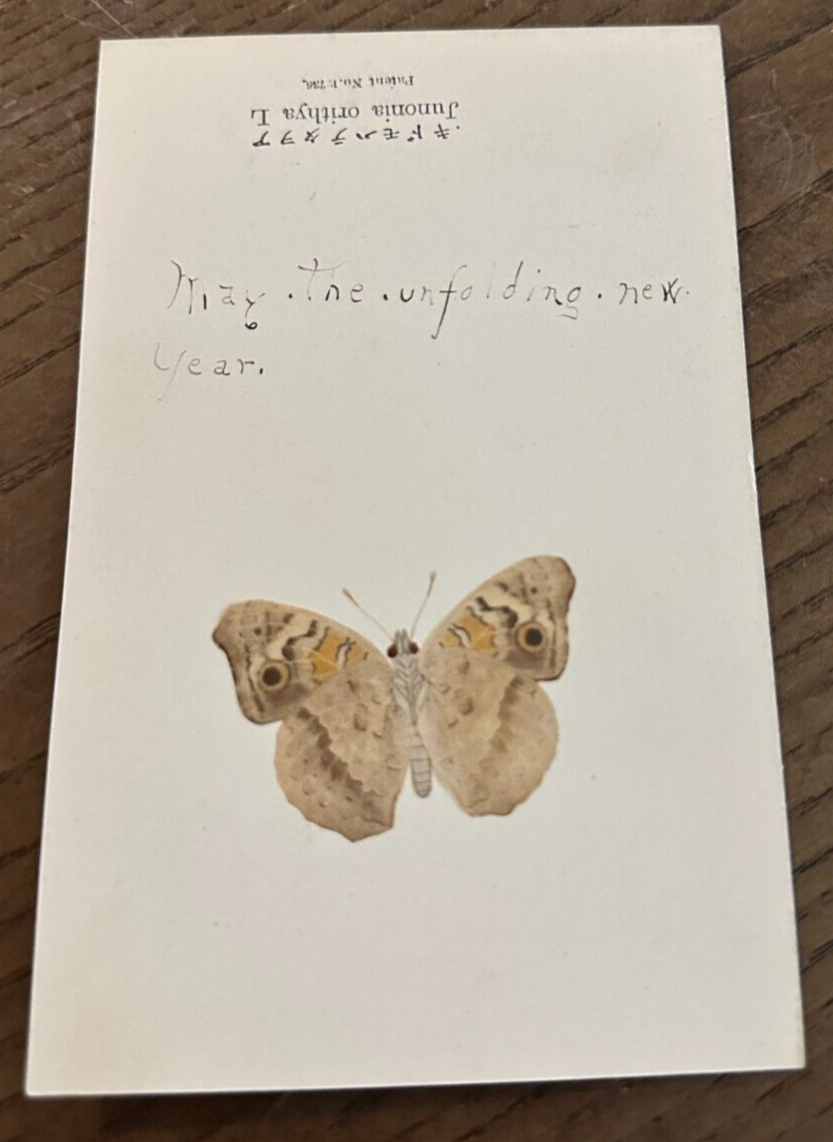 アヲタテハモドキ
Junonia orithya L
Patent No.
May . The . unfolding . new.
Year.